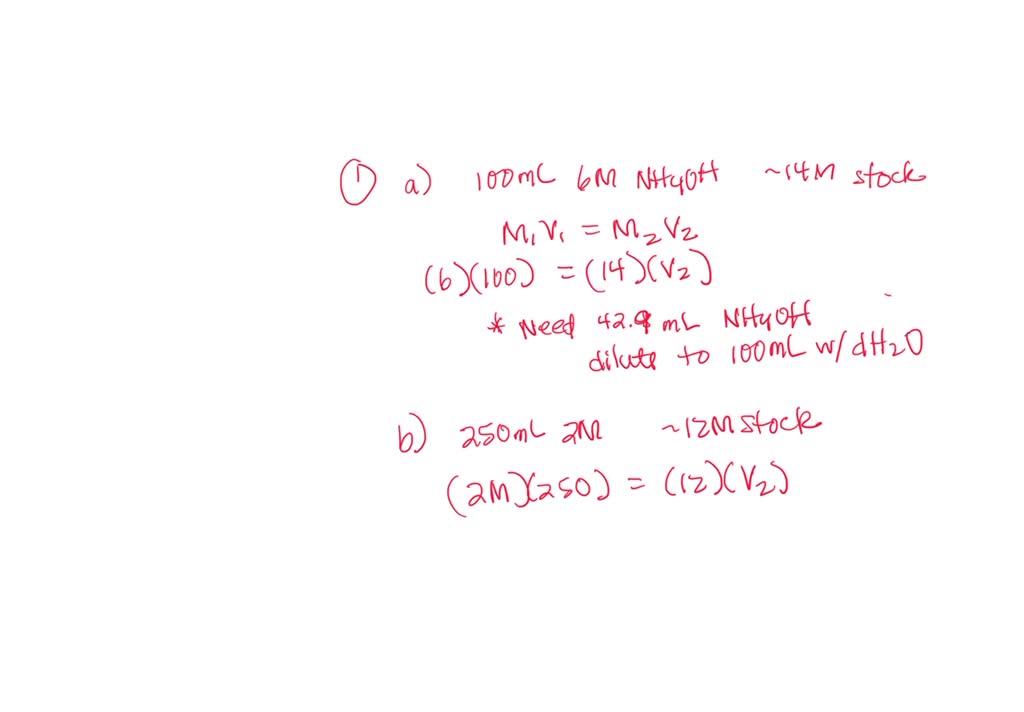 ① a) 100mL 6M NH4OH ~14M stock
M₁V₁ = M₂V₂
(6)(100) = (14)(V₂)
* Need 42.9 mL NH4OH
dilute to 100mL w/ dH₂O
b) 250mL 2M ~12M stock
(2M)(250) = (12)(V₂)